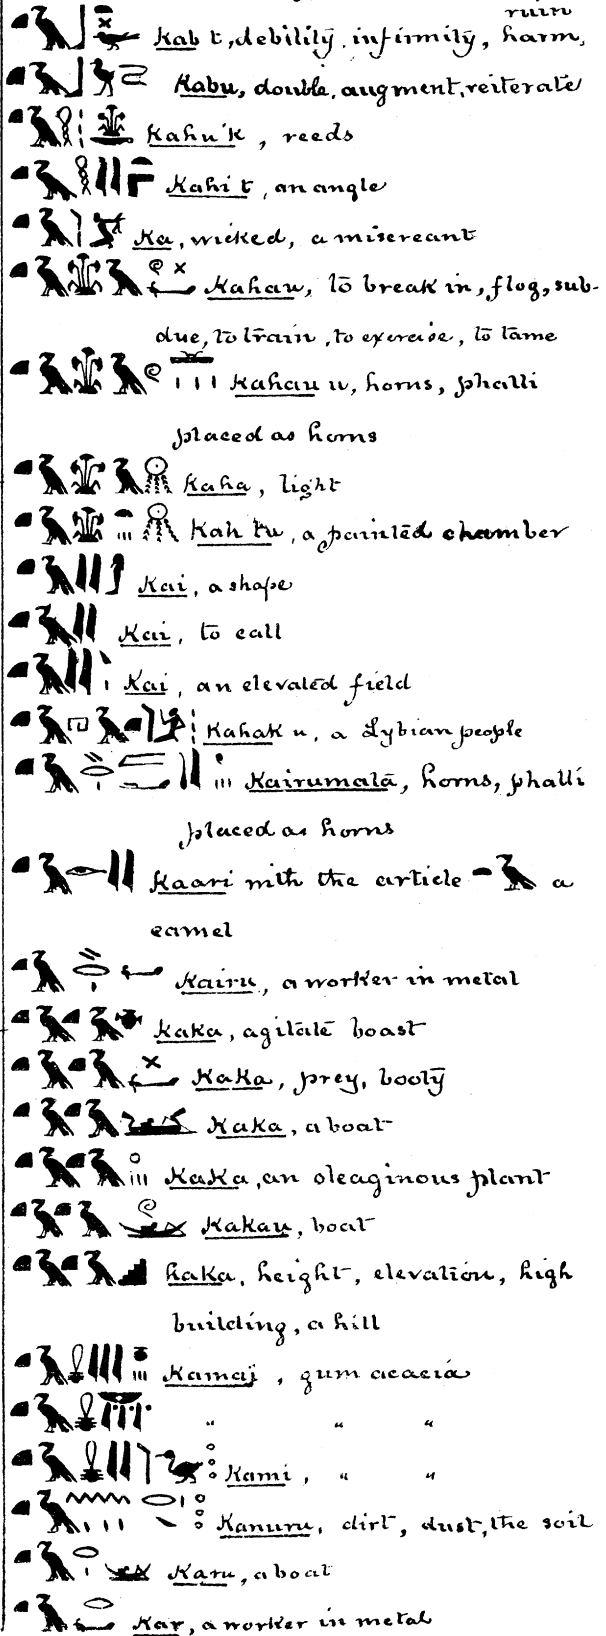 ruin
Kab t, debility, infirmity, harm,
Kabu, double, augment, reiterate
Kahu'k, reeds
Kahi t, an angle
Ka, wicked, a miscreant
Kahau, to break in, flog, sub-
due, to train, to exercise, to tame
Kahau u, horns, phalli
placed as horns
Kaha, light
Kah tu, a painted chamber
Kai, a shape
Kai, to call
Kai, an elevated field
Kahak u, a Lybian people
Kairumata, horns, phalli
placed as horns
Kaari with the article a
camel
Kairu, a worker in metal
Kaka, agitate boast
Kaka, prey, booty
Kaka, a boat
Kaka, an oleaginous plant
Kakau, boat
Kaka, height, elevation, high
building, a hill
Kamaij, gum acacia
" " "
Kami, " "
Kanuru, dirt, dust, the soil
Karu, a boat
Kar, a worker in metal